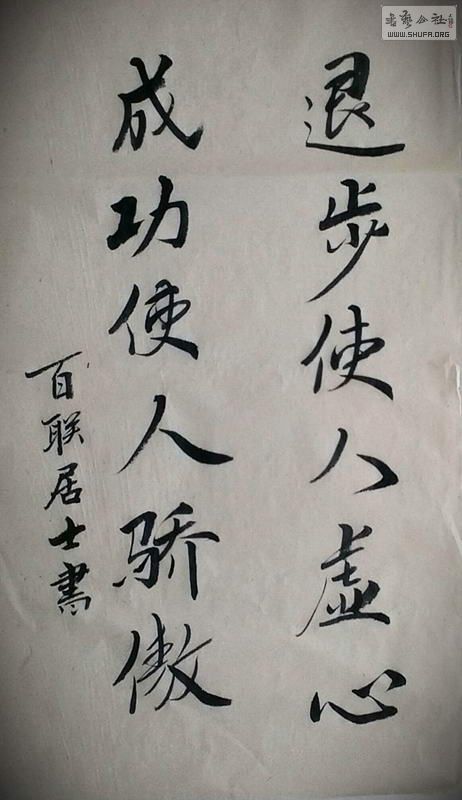 退步使人虚心
成功使人骄傲
百联居士書
书艺公社
WWW.SHUFA.ORG